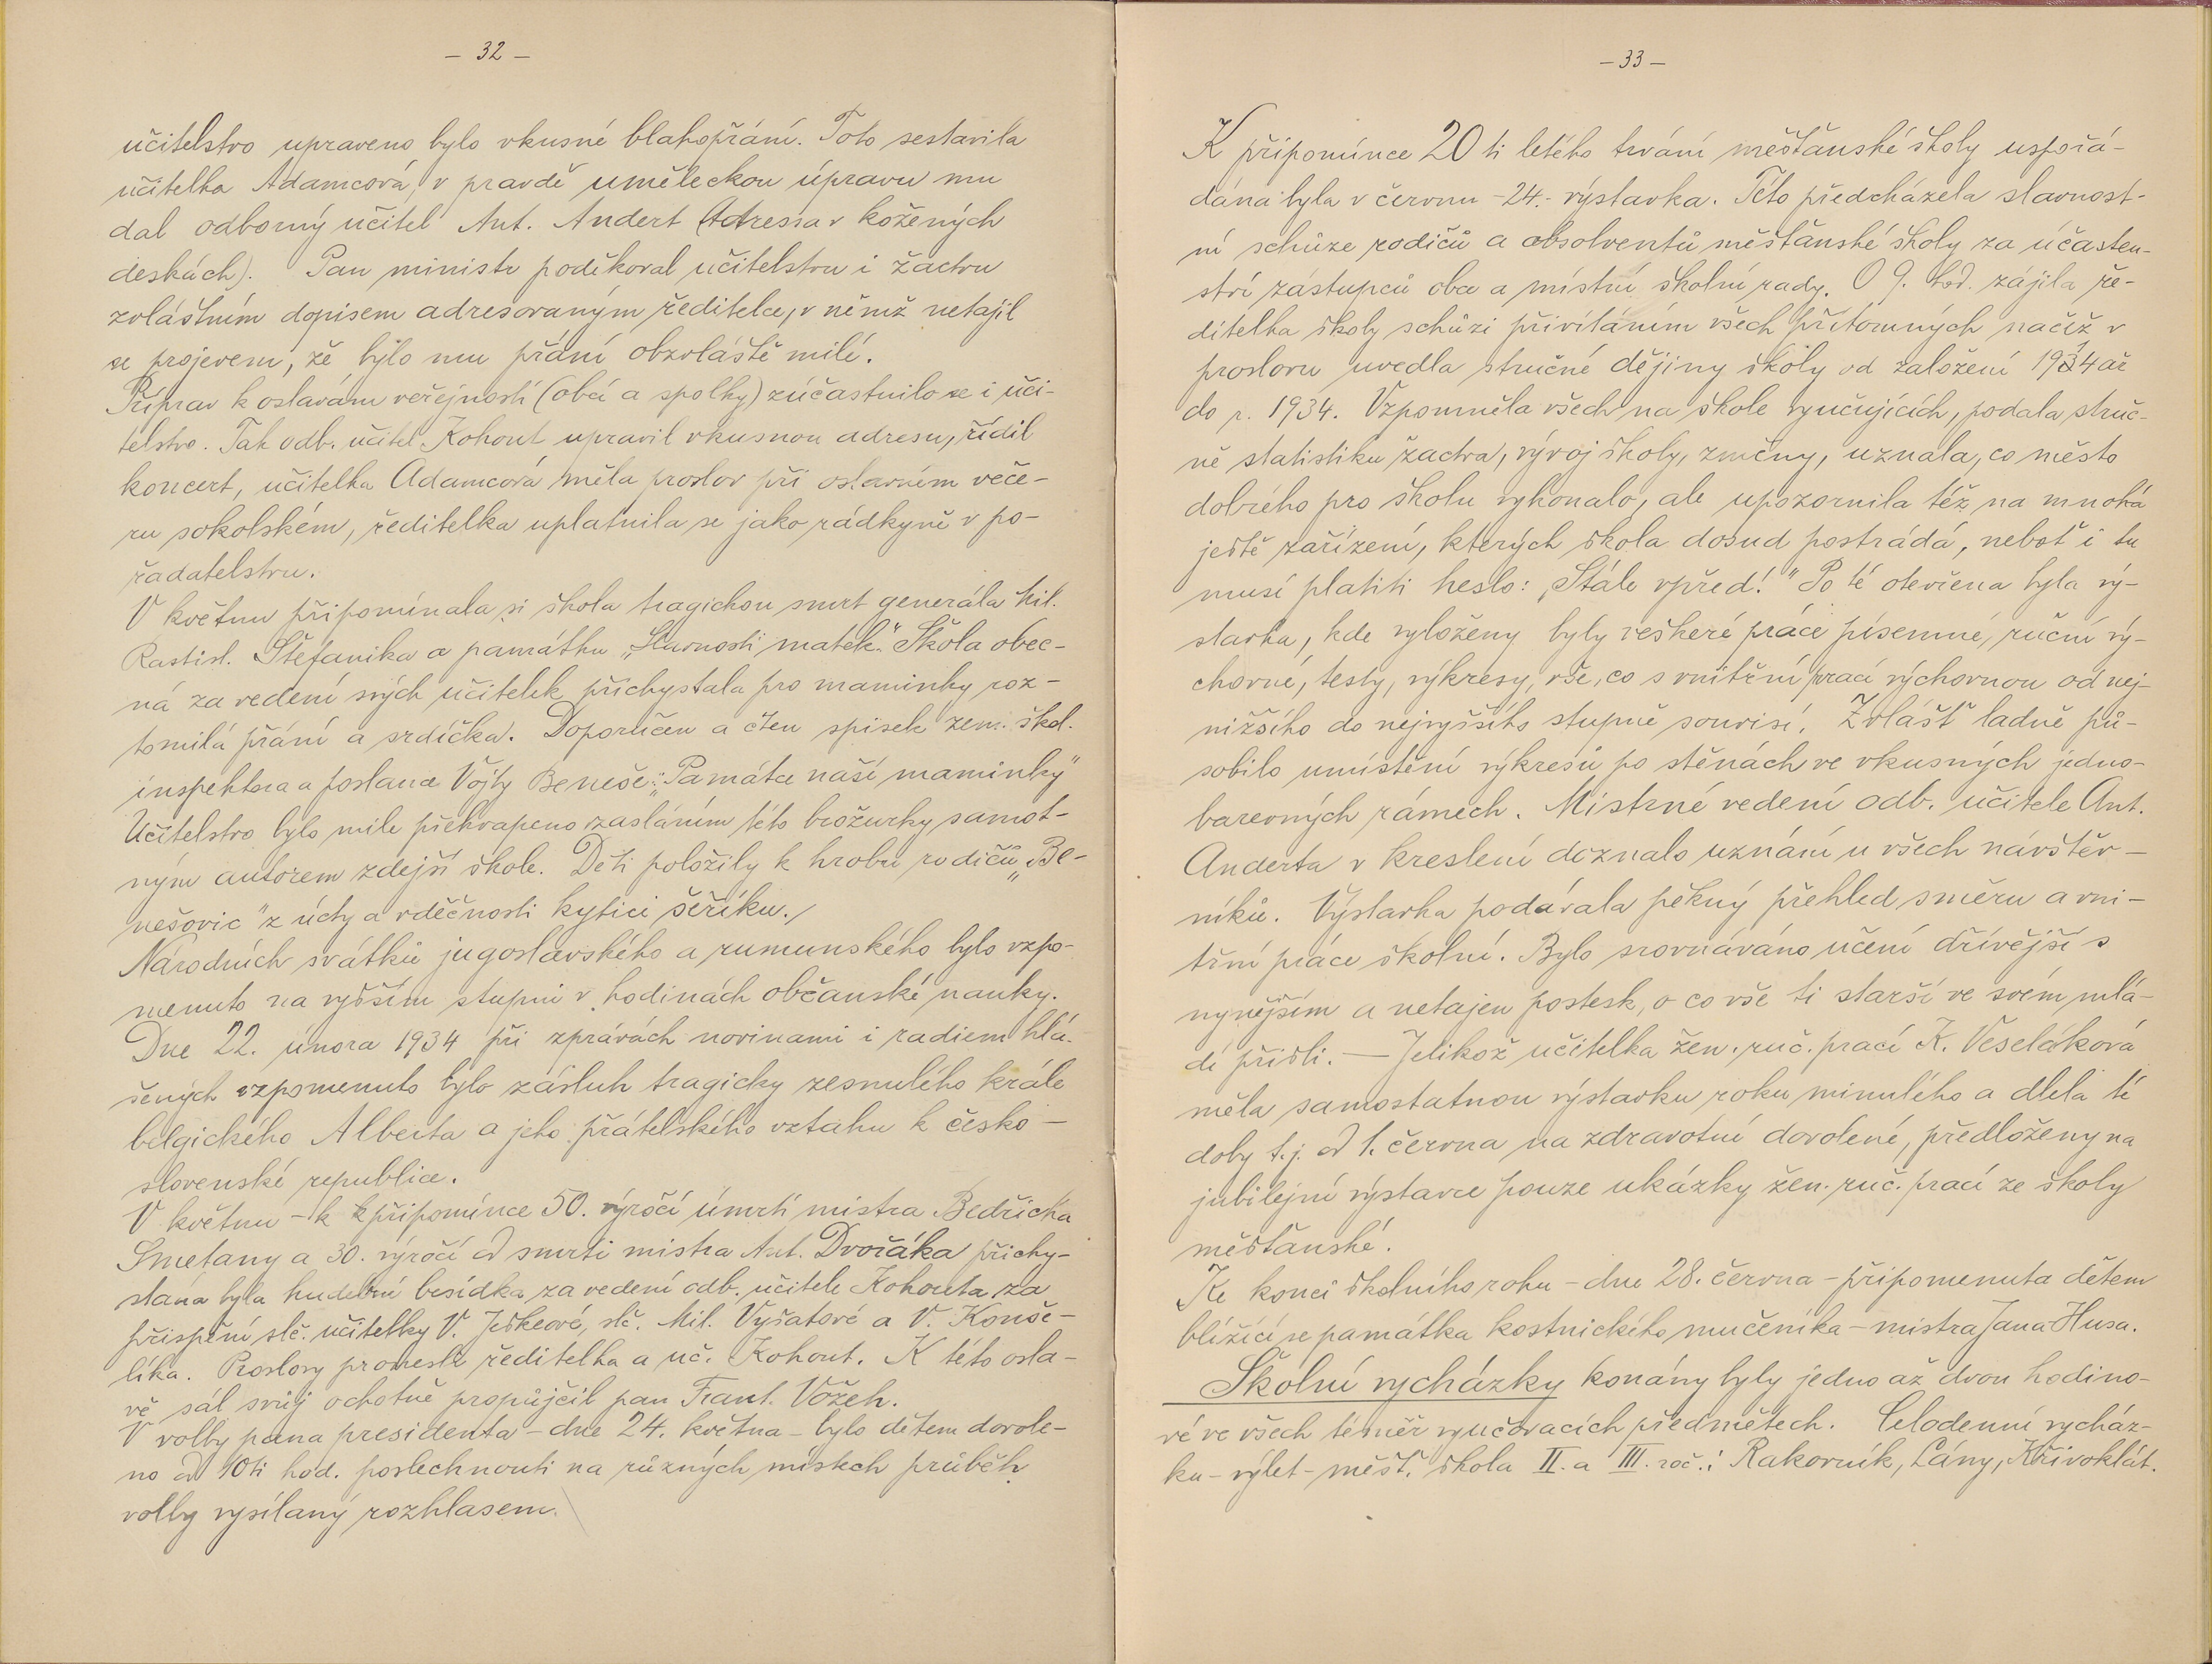 – 32 –
učitelstvo upraveno bylo vkusné blahopřání. Toto sestavila
učitelka Adamcová, v pravdě uměleckou úpravu mu
dal odborný učitel Ant. Andert (Adressa v kožených
deskách). Pan ministr poděkoval učitelstvu i žactvu
zvláštním dopisem adresovaným ředitelce, v němž netajil
se projevem, že bylo mu přání obzvláště milé.
Příprav k oslavám veřejností (obcí a spolky) zúčastnilo se i uči-
telstvo. Tak odb. učitel Kohout upravil vkusnou adresu, řídil
koncert, učitelka Adamcová měla proslov při oslavném veče-
ru sokolském, ředitelka uplatnila se jako rádkyně v po-
řadatelstvu.
V květnu připomínala si škola tragickou smrt generála Mil.
Rastisl. Štefanika a památku „Slavnosti matek". Škola obec-
ná za vedení svých učitelek přichystala pro maminky roz-
tomilá přání a srdíčka. Doporučen a čten spisek zem. škol.
inspektora a poslance Vojty Beneše: „Památce naší maminky"
Učitelstvo bylo mile překvapeno zasláním této brožurky samot-
ným autorem zdejší škole. Děti položily k hrobu rodičů „Be-
nešovic" z úcty a vděčnosti kytici šeříku.
Národních svátků jugoslavského a rumunského bylo vzpo-
menuto na vyšším stupni v hodinách občanské nauky.
Dne 22. února 1934 při zprávách novinami i radiem hlá-
šených vzpomenuto bylo zásluh tragicky zesnulého krále
belgického Alberta a jeho přátelského vztahu k česko-
slovenské republice.
V květnu – k připomínce 50. výročí úmrtí mistra Bedřicha
Smetany a 30. výročí od smrti mistra Ant. Dvořáka přichy-
stána byla hudební besídka za vedení odb. učitele Kohouta za
přispění slč. učitelky V. Ješkeové, slč. Mil. Vyšatové a V. Konše-
líka. Proslovy pronesli ředitelka a uč. Kohout. K této osla-
vě sál svůj ochotně propůjčil pan Frant. Vožeh.
V volby pana presidenta – dne 24. května – bylo dětem dovole-
no od 10ti hod. poslechnouti na různých místech průběh
volby vysílaný rozhlasem.
– 33 –
K připomínce 20 ti letého trvání měšťanské školy uspořá-
dána byla v červnu – 24. – výstavka. Této předcházela slavnost-
ní schůze rodičů a absolventů měšťanské školy za účasten-
ství zástupců obce a místní školní rady. O 9. hod. zájila ře-
ditelka školy schůzi přivítáním všech přítomných načež v
proslovu uvedla stručné dějiny školy od založení 1934 až
do r. 1934. Vzpomněla všech na škole vyučujících, podala struč-
ně statistiku žactva, vývoj školy, změny, uznala, co město
dobrého pro školu vykonalo, ale upozornila též na mnohá
ještě zařízení, kterých škola dosud postrádá, neboť i tu
musí platiti heslo: „Stále vpřed!" Po té otevřena byla vý-
stavka, kde vyloženy byly veškeré práce písemné, ruční vý-
chovné, testy, výkresy, vše, co s vnitřní prací výchovnou od nej-
nižšího do nejvyššího stupně souvisí. Zvlášť ladně pů-
sobilo umístění výkresů po stěnách ve vkusných jedno-
barevných rámech. Mistrné vedení odb. učitele Ant.
Anderta v kreslení doznalo uznání u všech návštěv-
níků. Výstavka podávala pěkný přehled směru a vni-
třní práce školní. Bylo srovnáváno učení dřívější s
nynějším a netajen postesk, o co vše ti starší ve svém mlá-
dí přišli. — Jelikož učitelka žen. ruč. prací K. Veseláková
měla samostatnou výstavku roku minulého a dlela té
doby t. j. od 1. června na zdravotní dovolené, předloženy na
jubilejní výstavce pouze ukázky žen. ruč. prací ze školy
měšťanské.
Ke konci školního roku – dne 28. června – připomenuta dětem
blížící se památka kostnického mučeníka – mistra Jana Husa.
Školní vycházky konány byly jedno až dvou hodino-
vé ve všech téměř vyučovacích předmětech. Celodenní vycház-
ku – výlet – měšť. škola II. a III. roč.: Rakovník, Lány, Křivoklát.